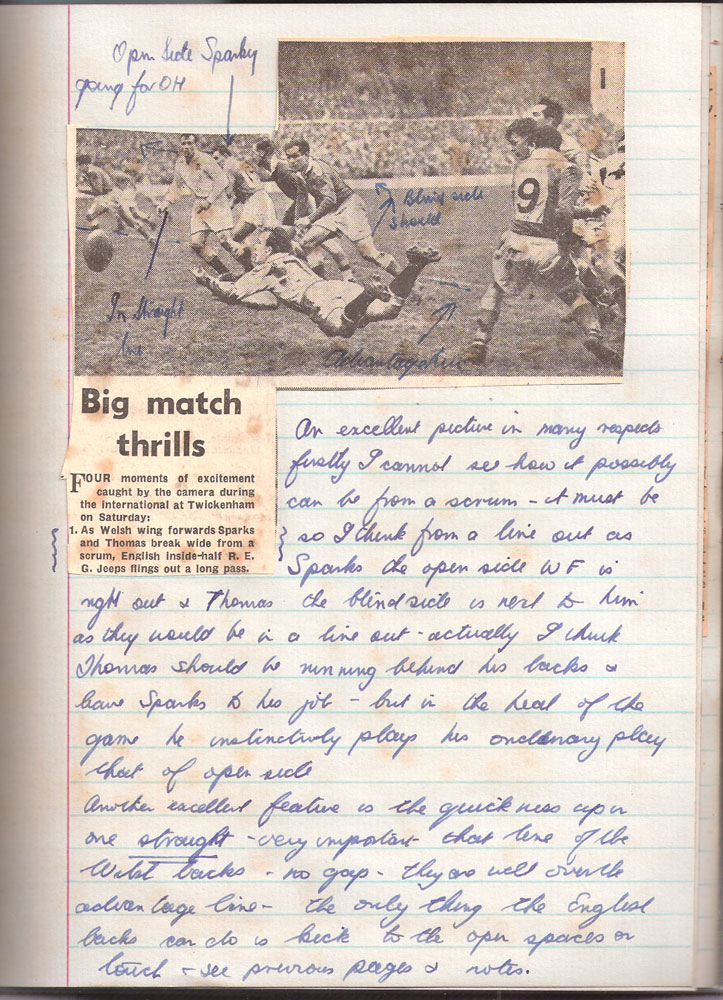 Open Side Sparky
going for OH
1
9
Blind side
should
In straight
line
Advantage line
Big match
thrills
FOUR moments of excitement
caught by the camera during
the international at Twickenham
on Saturday:
1. As Welsh wing forwards Sparks
and Thomas break wide from a
scrum, English inside-half R. E.
G. Jeeps flings out a long pass.
An excellent picture in many respects
firstly I cannot see how it possibly
can be from a scrum - it must be
so I think from a line out as
Sparks the open side WF is
right out & Thomas the blindside is next to him
as they would be in a line out - actually I think
Thomas should be running behind his backs &
leave Sparks to his job - but in the heat of the
game he instinctively plays his ordinary play
that of open side
Another excellent feature is the quickness upon
one straight - very important that line of the
Welsh backs - no gap - they are well over the
advantage line - the only thing the English
backs can do is kick to the open spaces or
touch - see previous pages & notes.